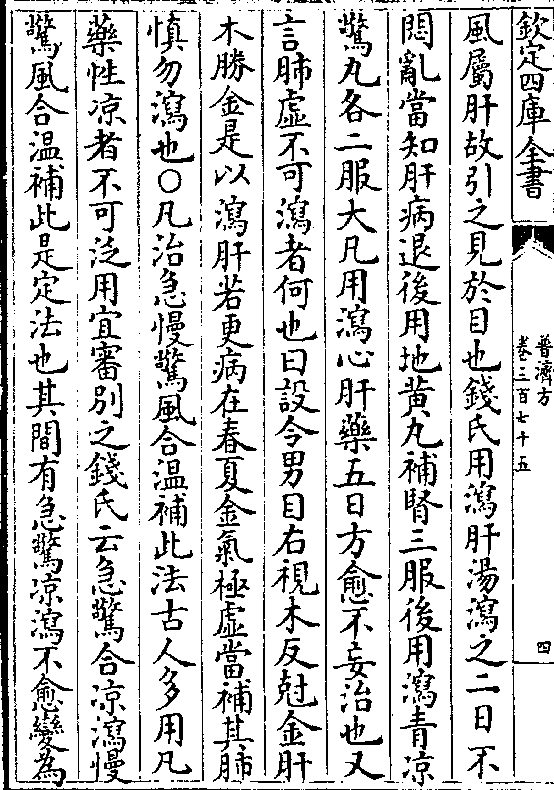 欽定四庫全書
普濟方
卷三百七十五
四
風屬肝故引之見於目也錢氏用瀉肝湯瀉之二日不
悶亂當知肝病退後用地黄丸補腎三服後用瀉青凉
驚丸各二服大凡用瀉心肝藥五日方愈不妄治也又
言肺虛不可瀉者何也曰設令男目右視木反尅金肝
木勝金是以瀉肝若更病在春夏金氣極虛當補其肺
慎勿瀉也○凡治急慢驚風合温補此法古人多用凡
藥性凉者不可泛用宜審別之錢氏云急驚合凉瀉慢
驚風合温補此是定法也其間有急驚凉瀉不愈變為